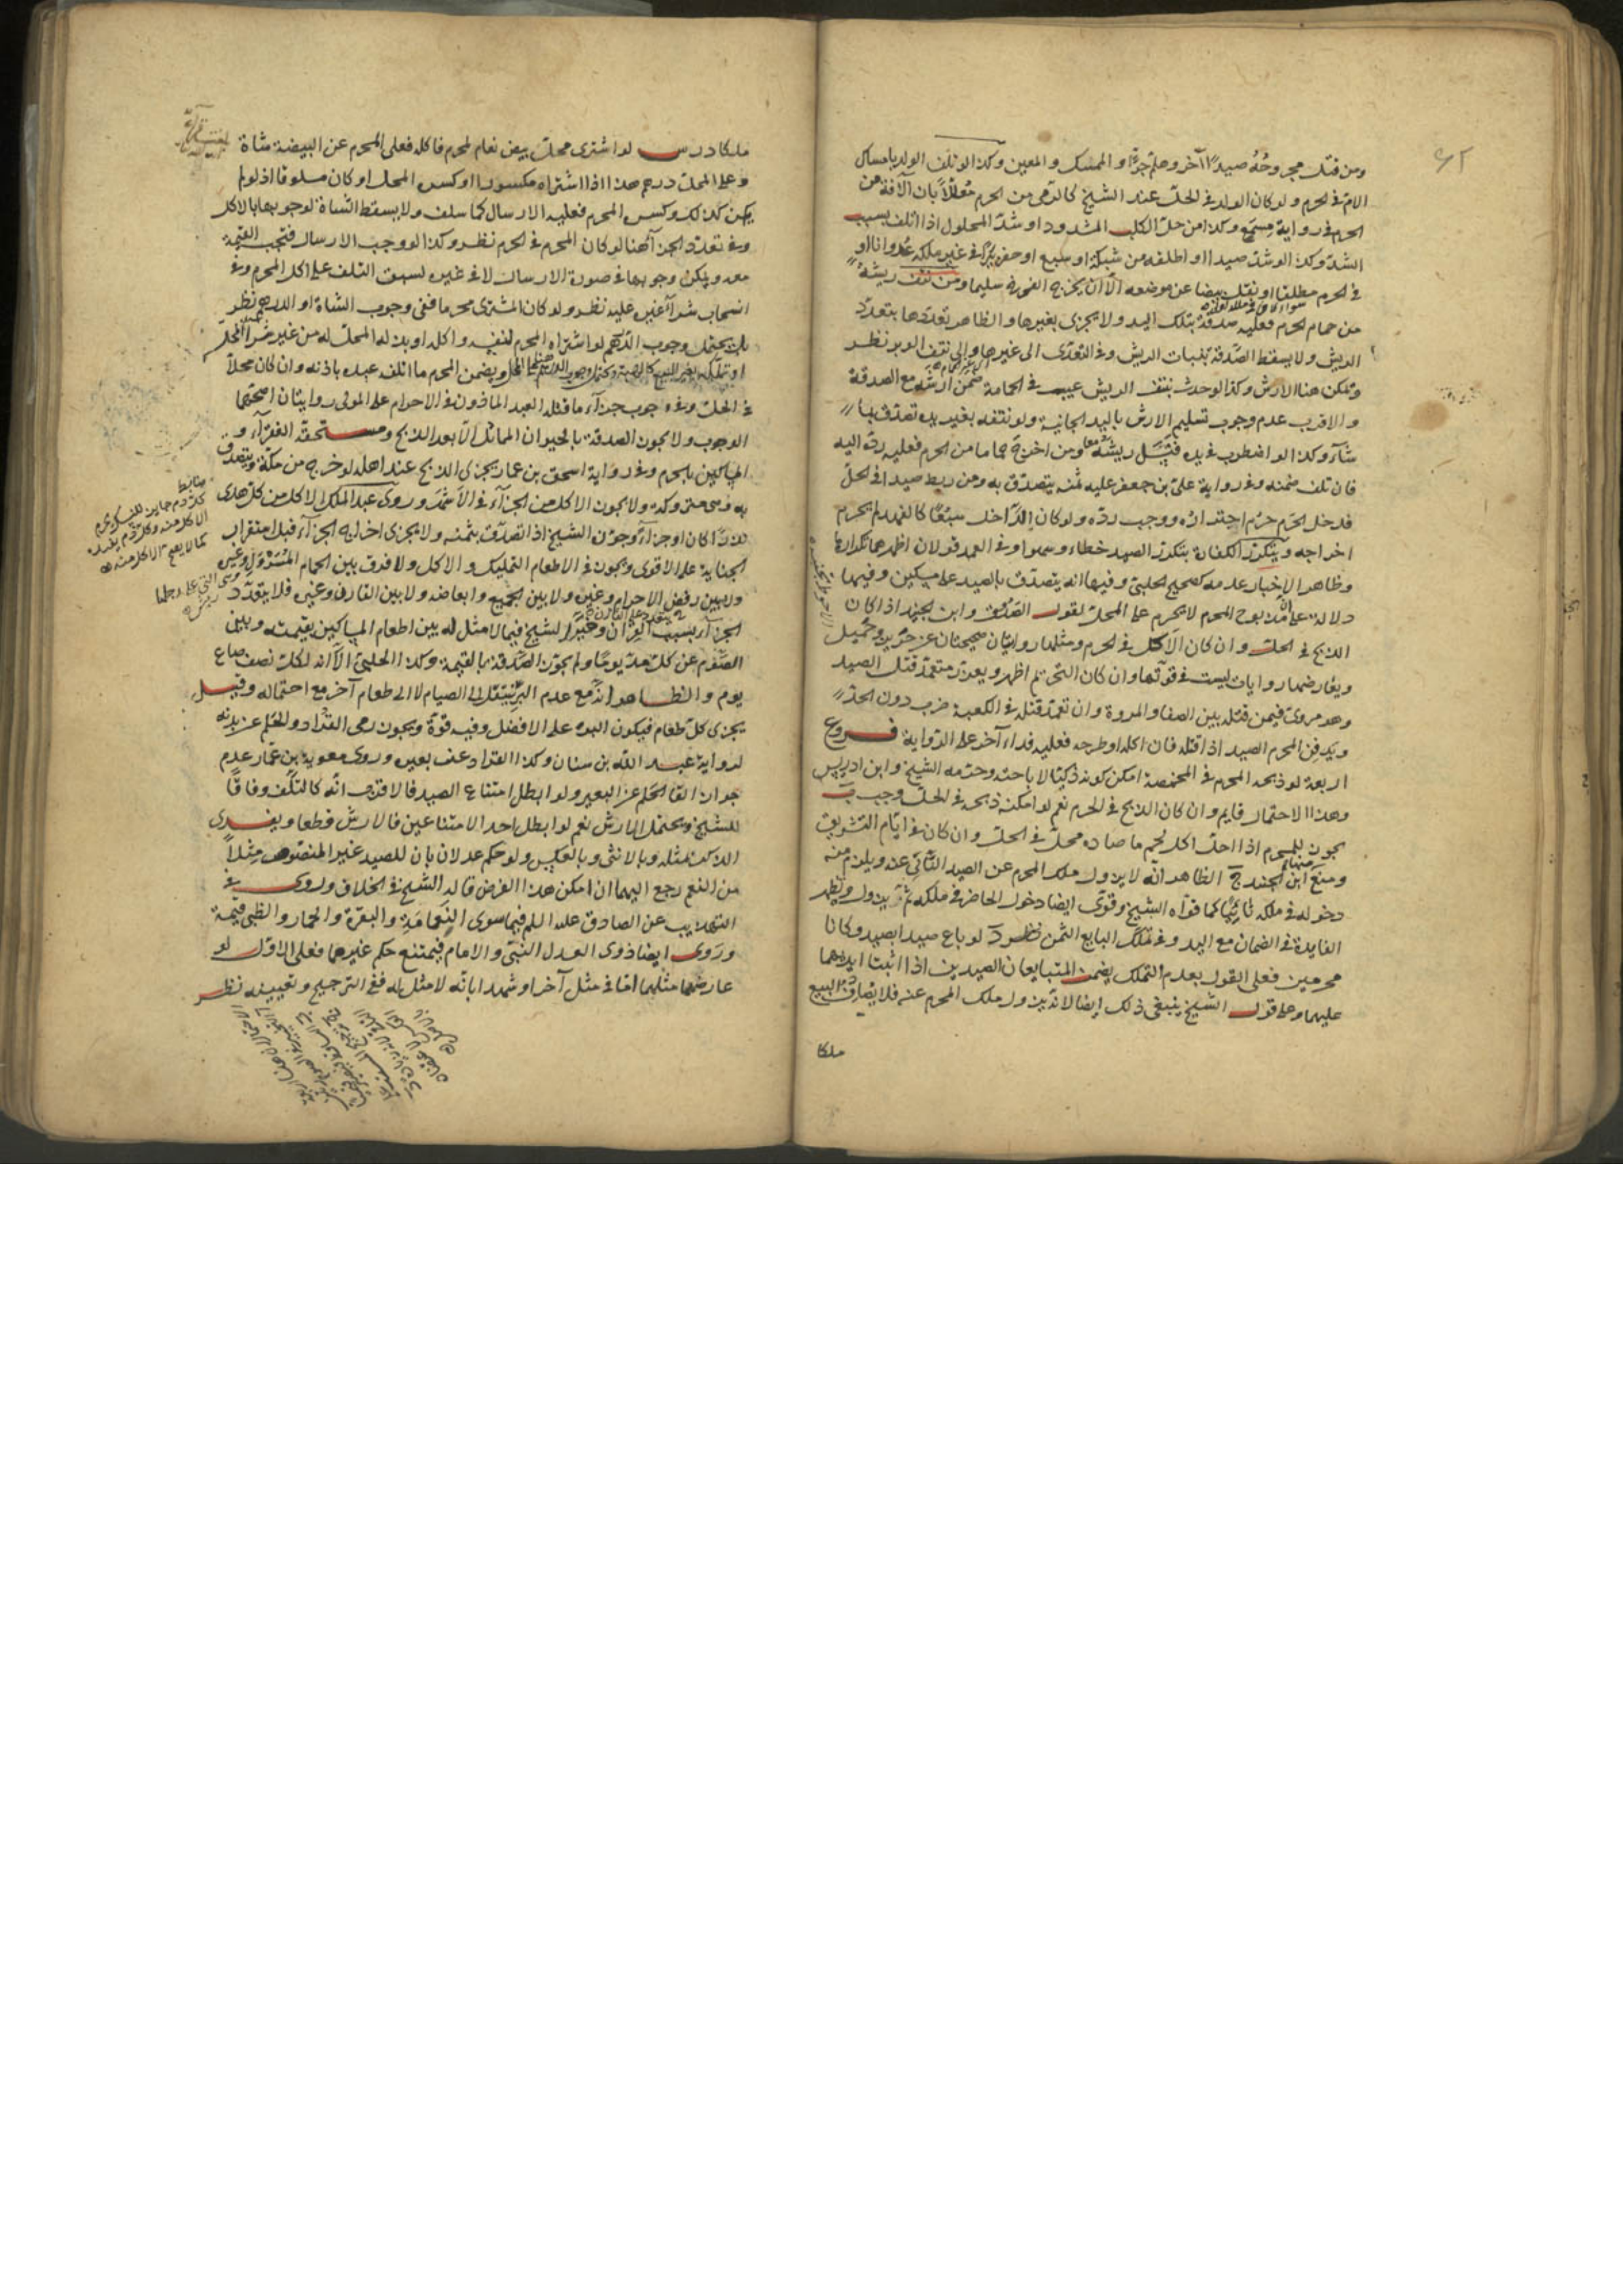 ومن قتل مجروحه صيدا آخر وعلم جرّا والممسك والمعين وكذا لو تلف الولد بامساك
الام في الحرم ولو كان الولد في الحل عند الشيخ كالرمي من الحرم معللا بان الآفة من
الحرم في رواية مسمع وكذا من حل الكلب المشدود او شد المحلول اذا اتلف بسبب
الشد وكذا لو شد صيدا او اطلقه من شبكة او سبع او حفر بئرا في غير ملكه عدوانا او
في الحرم مطلقا او نقل بيضا عن موضعه الا ان يخرج الفرخ سليما ومن نتف ريشة
من حمام الحرم فعليه صدقة بتلك اليد ولا يجزى بغيرها والظاهر تعددها بتعدد
الريش ولا يسقط الصدقة بنبات الريش وفي التعدى الى غيرها والى نتف الوبر نظر
ويمكن هنا الارش وكذا لو حدث بنتف الريش عيب في الحمامة ضمن ارشه مع الصدقة
والاقرب عدم وجوب تسليم الارش باليد الجانية ولو نتفه بغير يده تصدق بما
شاء وكذا لو اضطرب في يده فنسل ريشه ومن اخرج حماما من الحرم فعليه رده اليه
فان تلف ضمنه وفي رواية على بن جعفر عليه ثمنه يتصدق به ومن ربط صيدا في الحل
فدخل الحرم حرم اجتراره ووجب رده ولو كان الداخل سبعا كالفهد لم يحرم
اخراجه ويتكرر الكفارة بتكرر الصيد خطاء وسهوا وفي العمد قولان اظهرهما تكرارها
وظاهر الاخبار عدمه كصحيح الحلبي وفيها انه يتصدق بالصيد على مسكين وفيها
دلالة على ان مذبوح المحرم لا يحرم على المحل لقول الصدوق وابن الجنيد اذا كان
الذبح في الحل وان كان الاكل في الحرم ومثلها روايتان صحيحتان عن حريز وجميل
ويعارضها روايات ليست في قوتها وان كان التحريم اظهر ويعزر متعمد قتل الصيد
وهو مروى فيمن قتله بين الصفا والمروة وان تعمد قتله في الكعبة ضرب دون الحد
ويدفن المحرم الصيد اذا قتله فان اكله او طرحه فعليه فداء آخر على الرواية فروع
اربعة لو ذبحه المحرم في المخمصة امكن كونه ذكيا لاباحته وحرمه الشيخ وابن ادريس
وهذا الاحتمال قايم وان كان الذبح في الحرم نعم لو امكنه ذبحه في الحل وجب ب
يجوز للمحرم اذا احل اكل لحم ما صاده محل في الحل وان كان في ايام التشريق
ومنع ابن الجنيد منها ج الظاهر انه لا يزول ملك المحرم عن الصيد النائي عنه ويلزم منه
دخوله في ملكه نائيا كما قواه الشيخ وقوى ايضا دخول الحاضر في ملكه ثم يزول ويظهر
الفايدة في الضمان مع اليد وفي تملك البايع الثمن نظر د لو باع صيدا بصيد وكانا
محرمين فعلى القول بعدم التملك يضمن المتبايعان الصيدين اذا اثبتا ايديهما
عليهما وعلى قول الشيخ ينبغي ذلك ايضا لانه يزول ملك المحرم عنه فلا يصادف البيع
ملكا
ملكا درس لو اشترى محل بيض نعام لمحرم فاكله فعلى المحرم عن البيضة شاة
وعلى المحل درهم هذا اذا اشتراه مكسورا او كسره المحل او كان مسلوقا اذ لو لم
يكن كذلك وكسره المحرم فعليه الارسال كما سلف ولا يسقط الشاة لوجوبها بالاكل
وفي تعدد الجزاء هنا لو كان المحرم في الحرم نظر وكذا لو وجب الارسال فتجب القيمة
معه ويمكن وجوبها في صورة الارسال لا في غيره لسبق التلف على اكل المحرم وفي
انسحاب شراء غير عليه نظر ولو كان المشترى محرما ففي وجوب الشاة او الدرهم نظر
بل يحتمل وجوب الدرهم لو اشتراه المحرم لنفسه واكله او بذله المحل له من غير شراء
او تملكه بغير البيع كالهبة ويضمن المحرم ما اتلف عبده باذنه وان كان محلا
في الحل وفي وجوب جزاء ما قتله العبد الماذون في الاحرام على المولى روايتان اصحهما
الوجوب ولا يجوز الصدقة بالحيوان المماثل الا بعد الذبح ومستحقه الفقراء و
المساكين بالحرم وفي رواية اسحق بن عمار يجزى الذبح عند اهله لو خرج من مكة ويتصدق
به وهي متروكة ولا يجوز الاكل من الجزاء في الاشهر وروى عبد الملك الاكل من كل هدى
نذرا كان او جزاء وجوز الشيخ اذا تصدق بثمنه ولا يجزى اخراج الجزاء قبل استقرار
الجناية على الاقوى ويجوز في الاطعام التمليك والاكل ولا فرق بين الحمام المسرول وغيره
ولا بين رفض الاحرام وغيره ولا بين الجميع وابعاضه ولا بين القارن وغيره فلا يتعدد
الجزاء بسبب القران وخير الشيخ فيما لا مثل له بين اطعام المساكين بقيمته وبين
الصوم عن كل مد يوما ولم يجوز الصدقة بالقيمة وكذا الحلبي الا انه لكل نصف صاع
يوم والظاهر انه مع عدم البر ينتقل الى الصيام لا الى طعام آخر مع احتماله وقيل
يجزى كل طعام فيكون البر على الافضل وفيه قوة ويجوز رمى القراد والحلم عن بدنه
لرواية عبد الله بن سنان وكذا القراد عن بعيره وروى معوية بن عمار عدم
جواز القاء الحلم عن البعير ولو ابطل امتناع الصيد فالاقرب انه كالتلف وفاقا
للشيخ ويحتمل الارش نعم لو ابطل احد الامتناعين فالارش قطعا ويفدى
الذكر بمثله وبالانثى وبالعكس ولو حكم عدلان بان للصيد غير المنصوص مثلا
من النعم رجع اليهما ان امكن هذا الفرض قاله الشيخ في الخلاف وروى في
التهذيب عن الصادق عليه السلم فيما سوى النعامة والبقرة والحمار والظبي قيمة
وروى ايضا ذوى العدل النبي والامام فيمتنع حكم غيرهما فعلى الاول لو
عارضهما مثلهما اما في مثل آخر او شهدا بانه لا مثل له ففي الترجيح وتعيينه نظر
ضابط
كل دم جابر للنسك يحرم
الاكل منه وكل دم
كما لا يصح الاكل منه